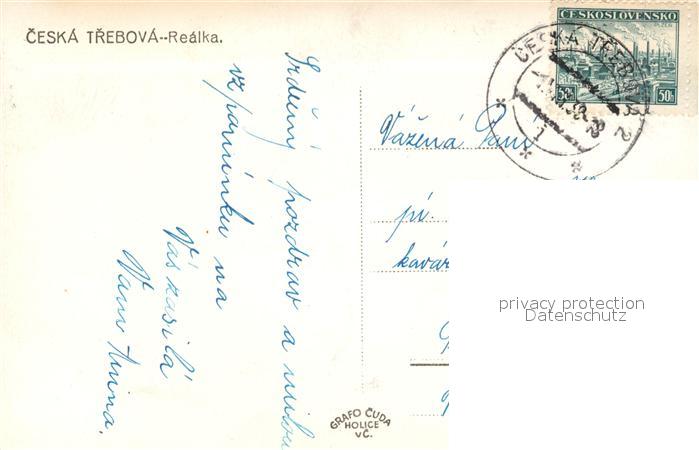 ČESKÁ TŘEBOVÁ--Reálka.
Srdečný pozdrav a milou
vzpomínku na
Vás zasílá
ČESKOSLOVENSKO
50h 50h
ČESKÁ TŘEBOVÁ 2
Vážená Paní
pí.
kavár
privacy protection
Datenschutz
GRAFO ČUDA
HOLICE
V Č.